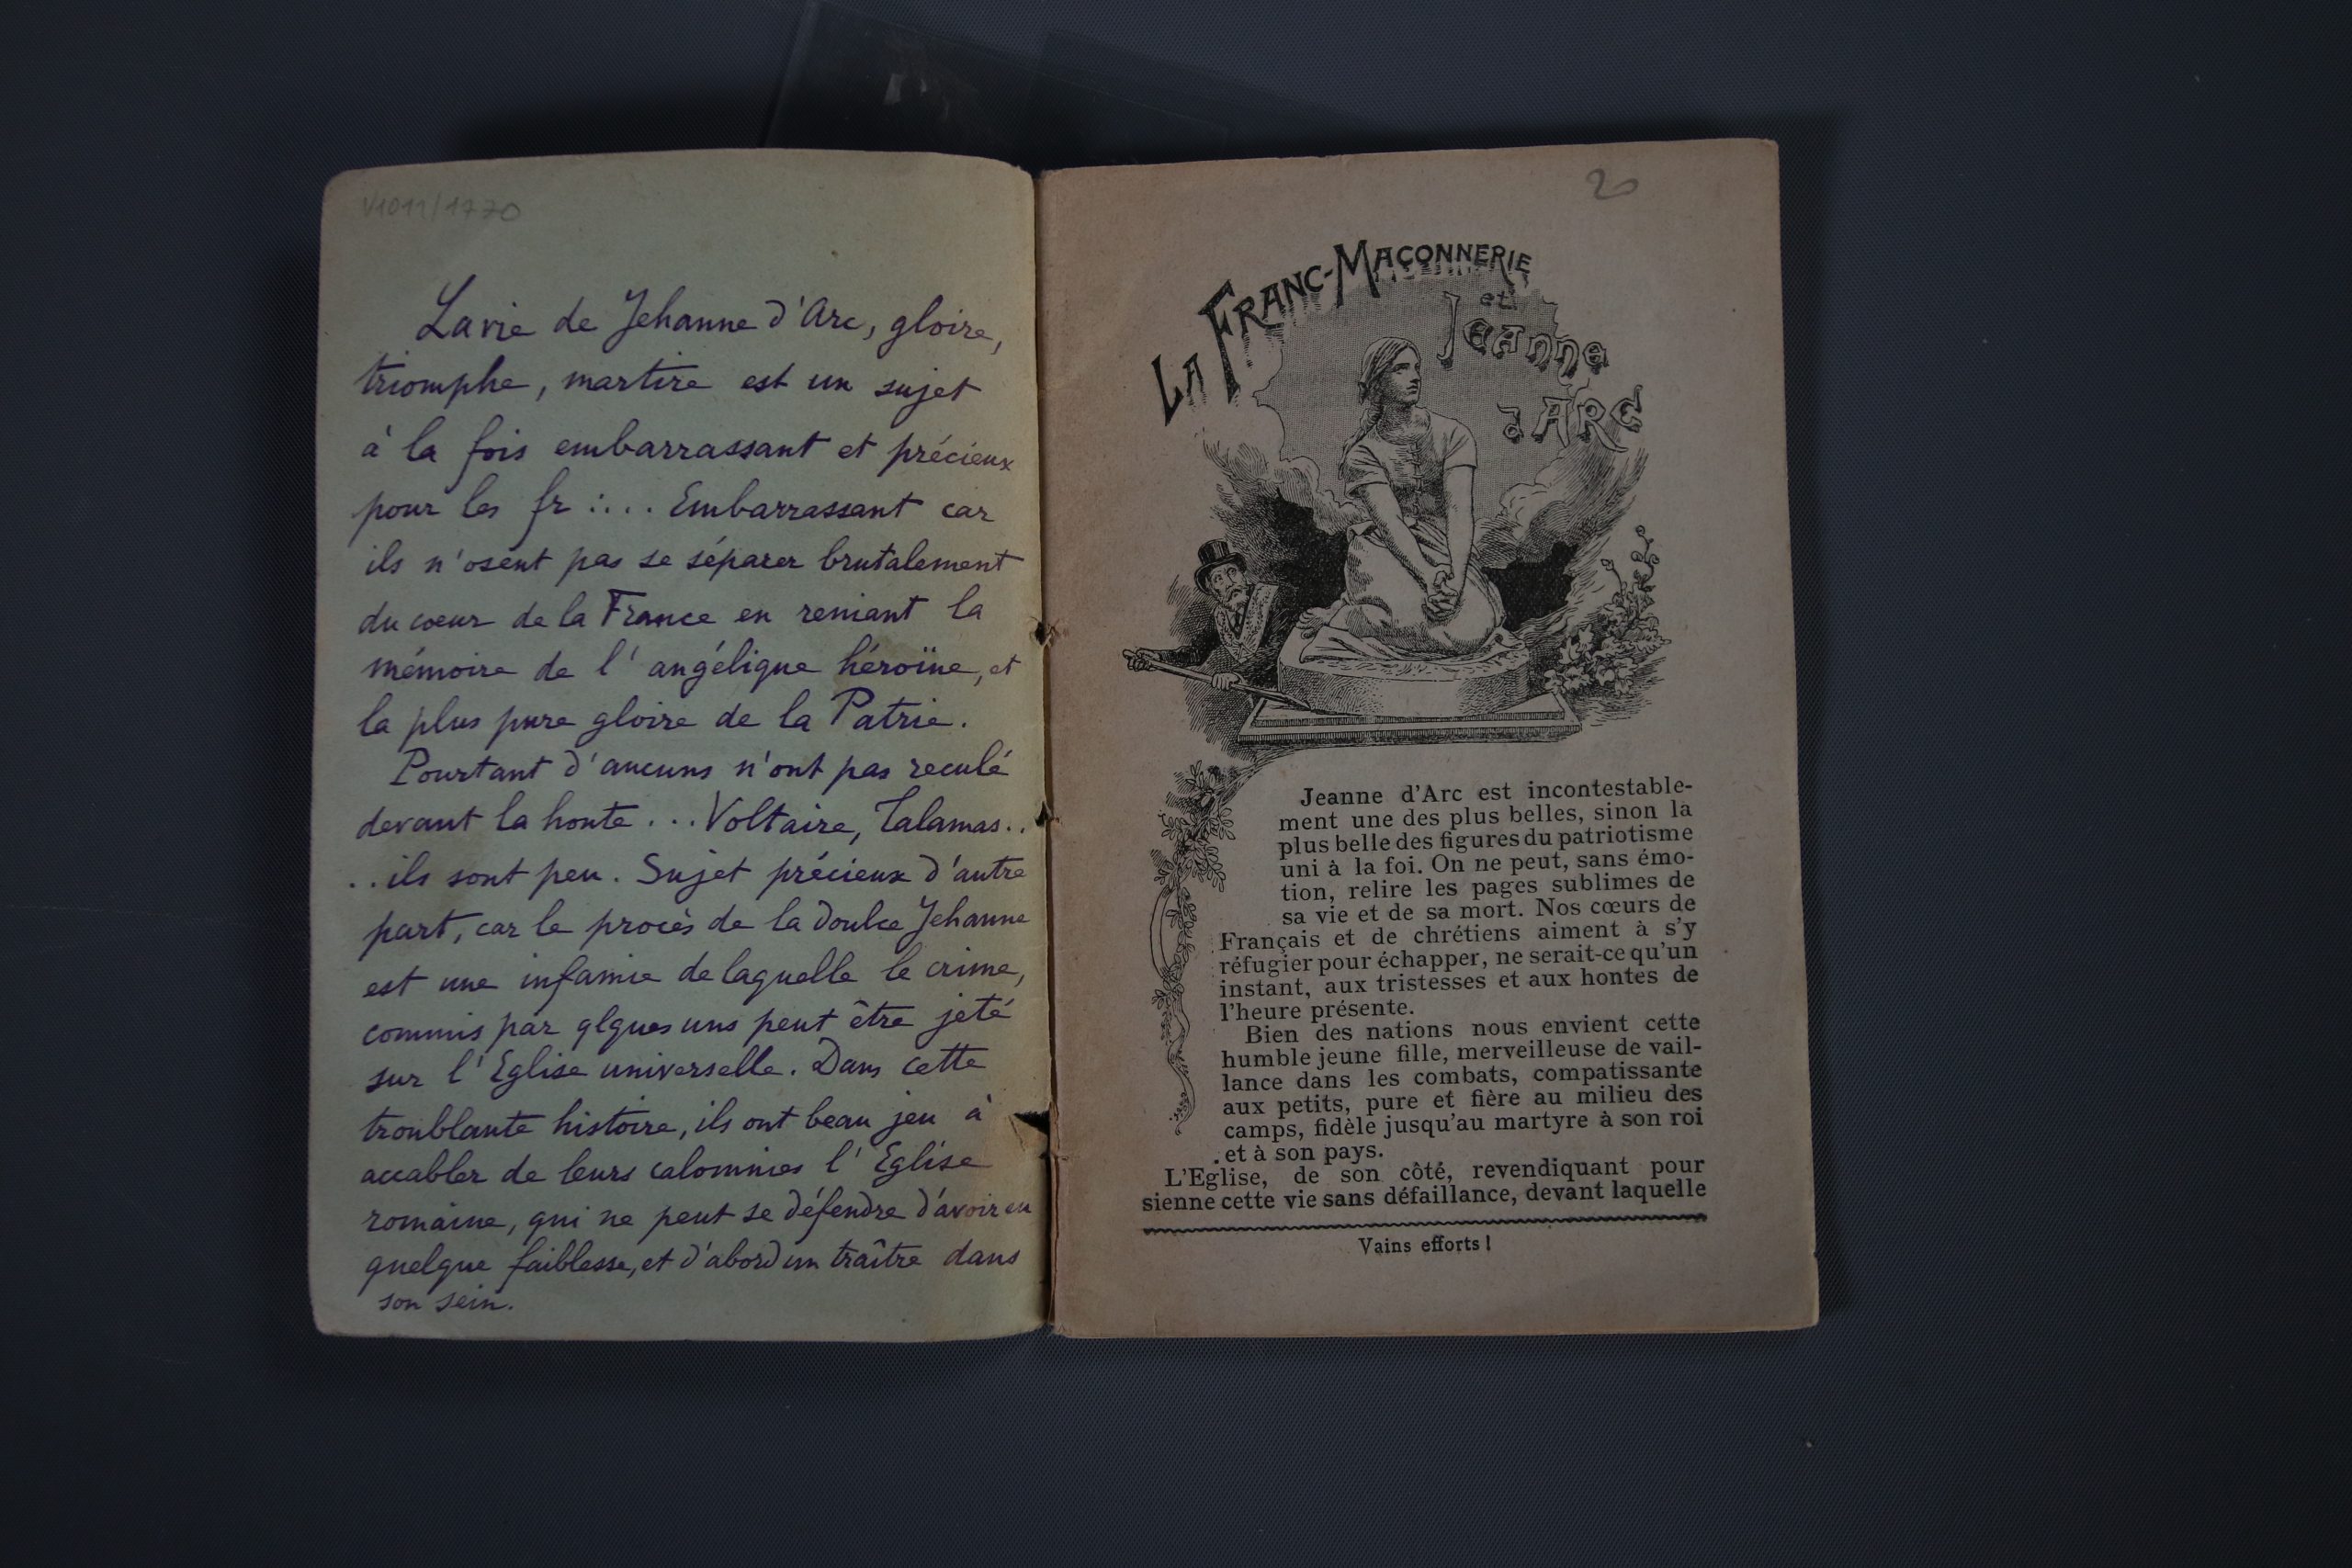 V1011/1770
La vie de Jehanne d'Arc, gloire,
triomphe, martire est un sujet
à la fois embarrassant et précieux
pour les fr ∴... Embarrassant car
ils n'osent pas se séparer brutalement
du cœur de la France en reniant la
mémoire de l'angélique héroïne, et
la plus pure gloire de la Patrie.
Pourtant d'aucuns n'ont pas reculé
devant la honte... Voltaire, Talamas..
..ils sont peu. Sujet précieux d'autre
part, car le procès de la doulce Jehanne
est une infamie de laquelle le crime,
commis par qlques uns peut être jeté
sur l'Eglise universelle. Dans cette
troublante histoire, ils ont beau jeu à
accabler de leurs calomnies l'Eglise
romaine, qui ne peut se défendre d'avoir eu
quelque faiblesse, et d'abord un traître dans
son sein.
20
LA FRANC-MAÇONNERIE
et
JEANNE
d'ARC
Jeanne d'Arc est incontestable-
ment une des plus belles, sinon la
plus belle des figures du patriotisme
uni à la foi. On ne peut, sans émo-
tion, relire les pages sublimes de
sa vie et de sa mort. Nos cœurs de
Français et de chrétiens aiment à s'y
réfugier pour échapper, ne serait-ce qu'un
instant, aux tristesses et aux hontes de
l'heure présente.
Bien des nations nous envient cette
humble jeune fille, merveilleuse de vail-
lance dans les combats, compatissante
aux petits, pure et fière au milieu des
camps, fidèle jusqu'au martyre à son roi
et à son pays.
L'Eglise, de son côté, revendiquant pour
sienne cette vie sans défaillance, devant laquelle
Vains efforts !